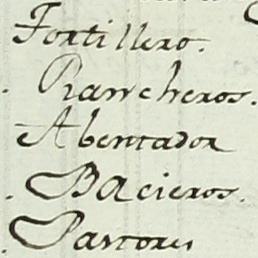 Fortillero.
Rancheros.
Abentador
Bacieros.
Pastores